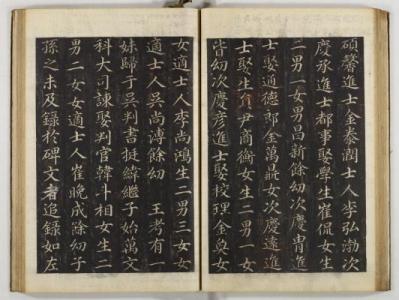 碩馨進士金泰潤士人李弘渤次
慶承進士都事娶學生崔侃女生
二男一女男昌新餘幼次慶胄進
士娶通德郎金萬鼎女次慶遠進
士娶生員尹商衡女生二男一女
皆幼次慶彦進士娶校理金奐女
女適士人李尚鴻生二男三女女
適士人吳尚溥餘幼 王考有一
妹歸于吳判書挺緯繼子始萬文
科大司諫娶判官韓斗相女生二
男二女女適士人崔晩成餘幼子
孫之未及錄於碑文者追錄如左